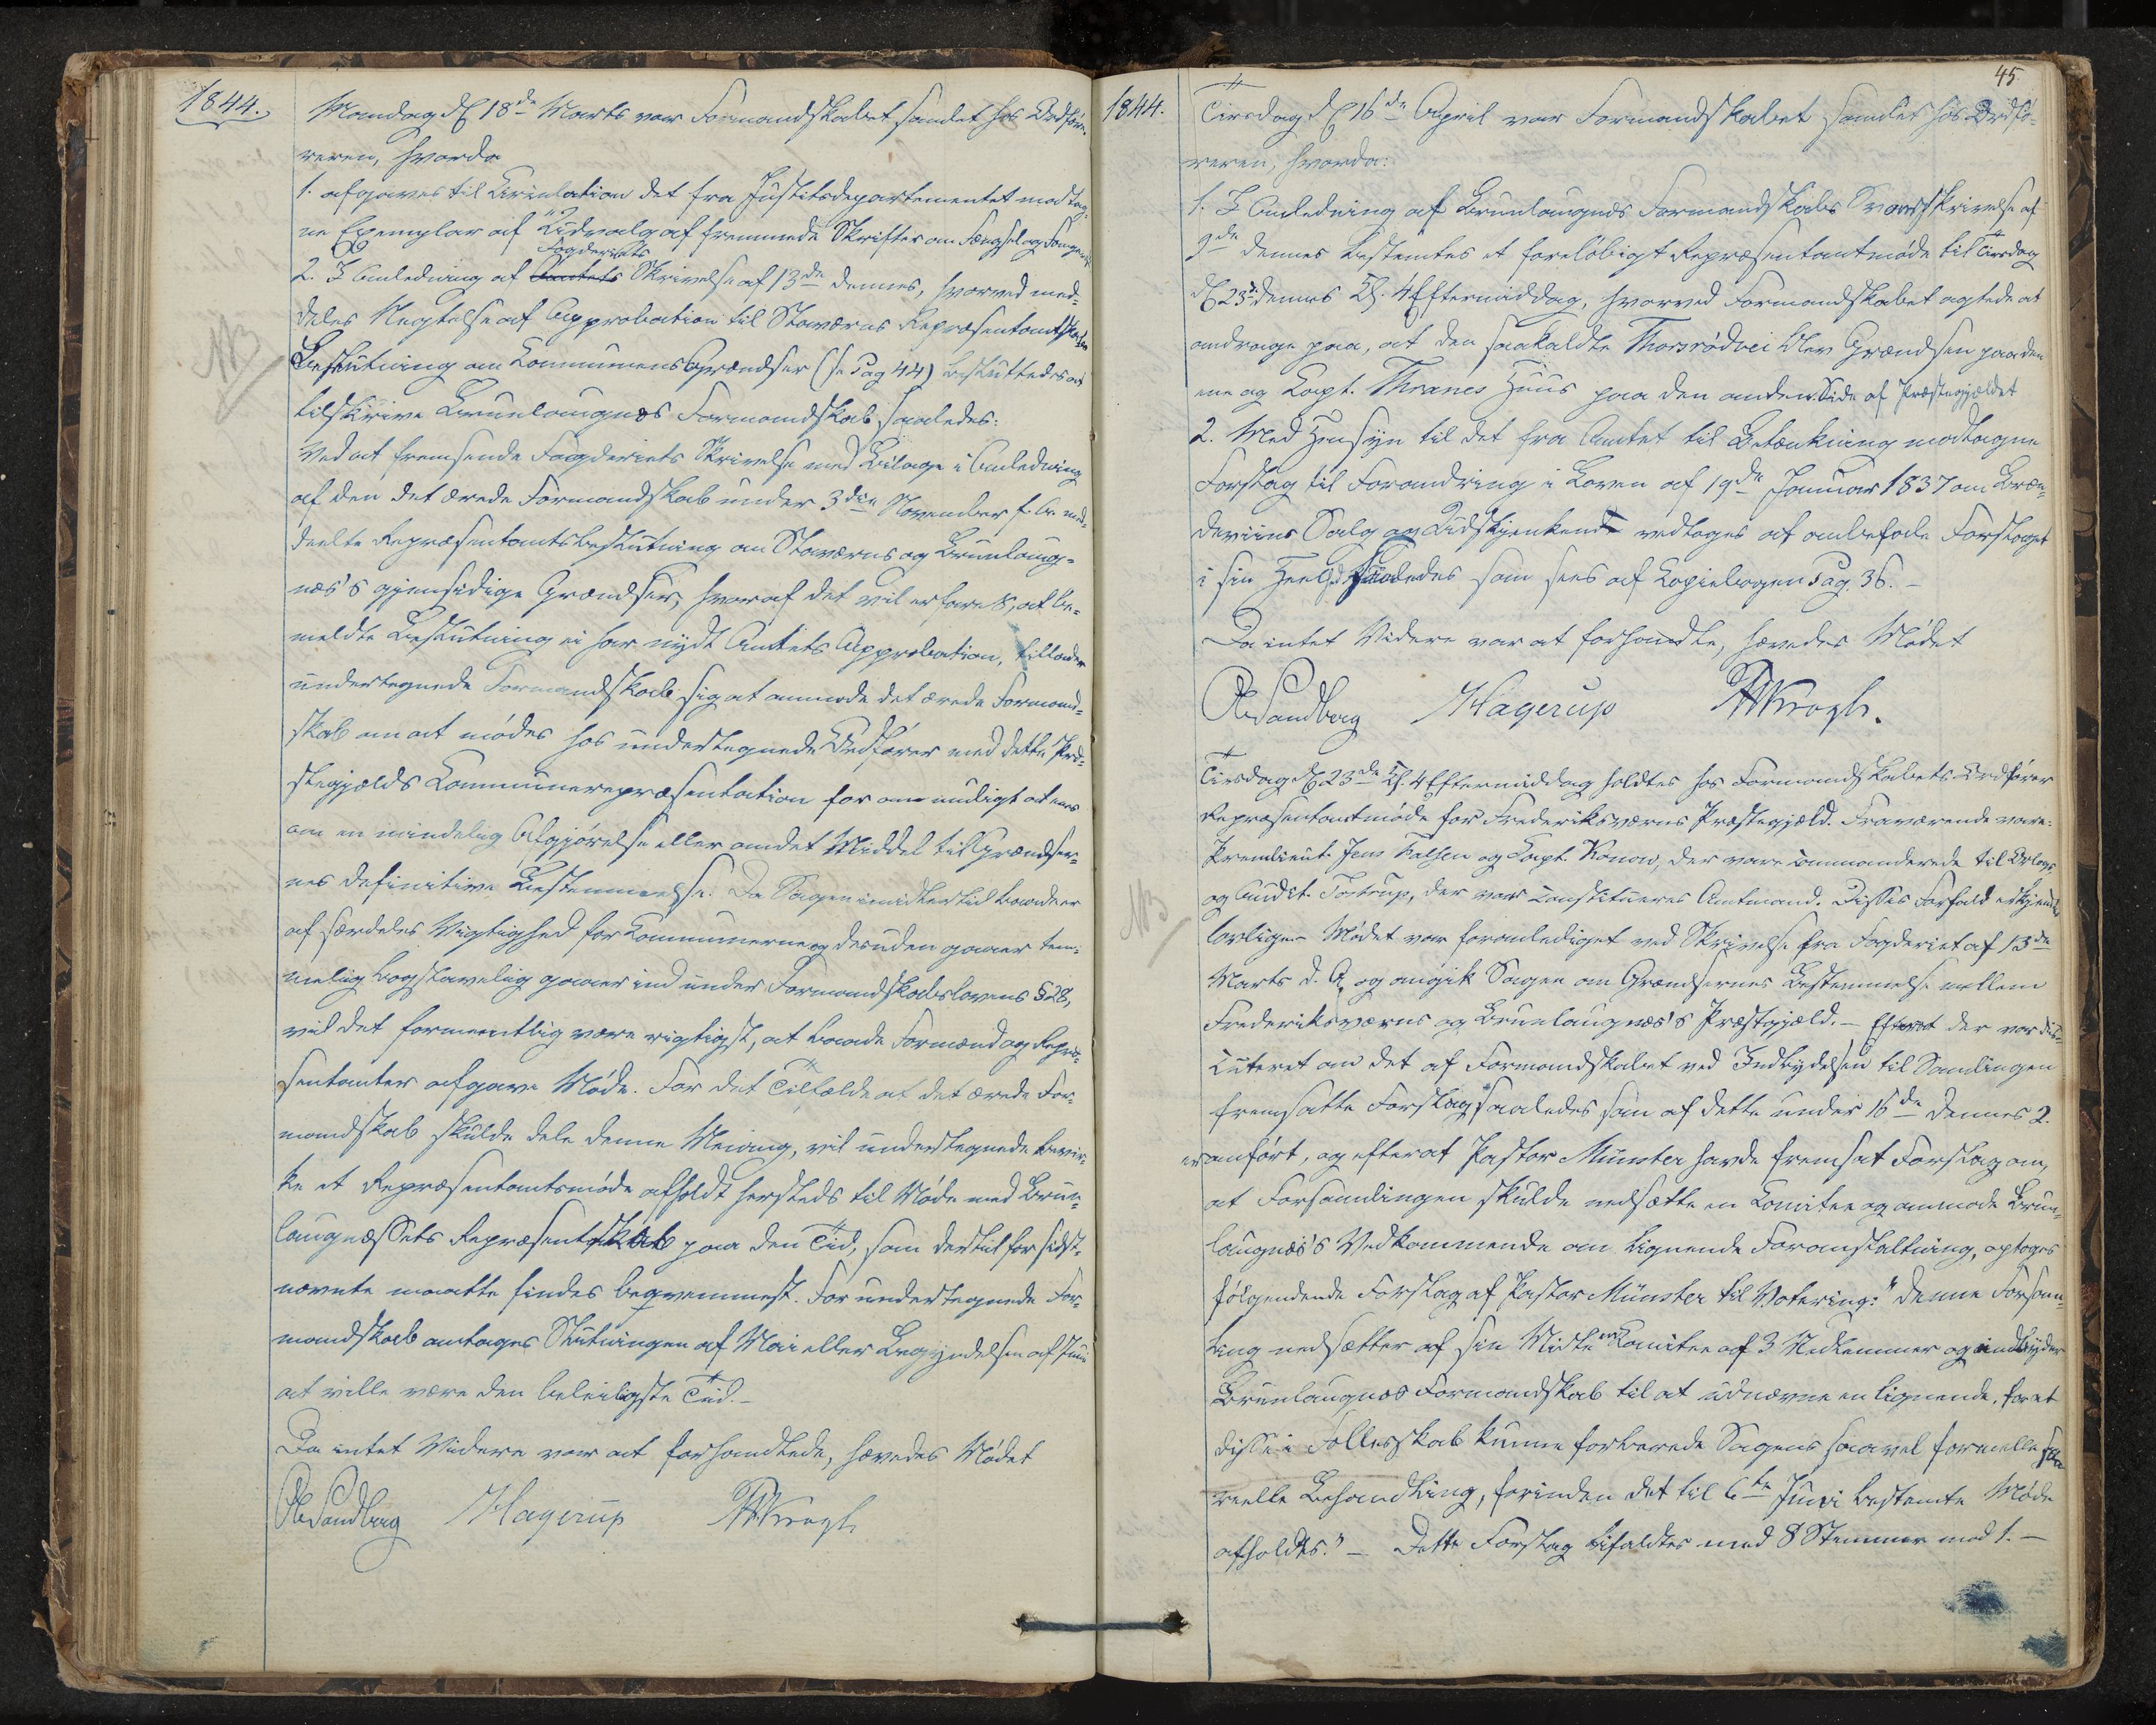 1844.
Mandag d. 18de Marts var Formandskabet samlet hos Ordfø-
reren, hvorda
1. afgaves til Cirkulation det fra Justitsdepartementet modtag-
ne Exemplar af "Udvalg af fremmede Skrifter om Fængsel og Fanger"
Fogderiets
2. I Anledning af Amtets Skrivelse af 13de dennes, hvorved med-
NB
deles Negtelse af Approbation til Staværns Repræsentantskabs
Beslutning om Kommunens Grændser (se Pag 44) besluttedes at
tilskrive Brunlaugnæs Formandskab saaledes:
Ved at fremsende Fogderiets Skrivelse med Bilage i Anledning
af den det ærede Formandskab under 3die November f. A. med-
deelte Repræsentantsbeslutning om Staværns og Brunlaug-
næs's gjensidige Grændser, hvoraf det vil erfares, at be-
meldte Beslutning ei har nydt Amtets Approbation, tillader
undertegnede Formandskab sig at anmode det ærede Formand-
skab om at mødes hos undertegnede Ordfører med dette Præ-
stegjælds Kommunerepræsentation for om muligt at enes
om en mindelig Afgjørelse eller andet Middel til Grændser-
nes definitive Bestemmelse. Da Sagen imidlertid baade er
af særdeles Vigtighed for Kommunerne og desuden gaaer tem-
melig bogstavelig gaaer ind under Formandskabslovens § 28,
vil det formeentlig være rigtigst, at baade Formænd og Repræ-
sentanter afgave Møde. For det Tilfælde at det ærede For-
mandskab skulde dele denne Mening, vil undertegnede bevir-
ke et Repræsentantsmøde afholdt hersteds til Møde med Brun-
laugnæssets Repræsentskab paa den Tid, som dertil for sidst-
nævnte maatte findes beqvemmest. For undertegnede For-
mandskab antages Slutningen af Mai eller Begyndelsen af Juni
at ville være den beleiligste Tid.-
Da intet Videre var at forhandlede, hævedes Mødet
Ole Sandberg Hagerup Krogh
45.
1844.
Tirsdag d. 16de April var Formandskabet samlet hos Ordfø-
reren, hvorda:
1. I Anledning af Brunlaugnæs Formandskabs Svarskrivelse af
9de dennes bestemtes et foreløbigt Repræsentantmøde til Tirsdag
d. 23de dennes Kl. 4 Eftermiddag, hvorved Formandskabet agtede at
andrage paa, at den saakaldte Thorsrødvei blev Grændsen paa den
ene og Capt. Thranes Huus paa den anden Side af Præstegjældet
2. Med Hensyn til det fra Amtet til Betænkning modtagne
Forslag til Forandring i Loven af 19de Januar 1837 om Bræn-
deviins Salg og Udskjenkende vedtoges at anbefale Forslaget
i sin Heelhed saaledes som sees af Kopiebogen Pag. 36.-
Da intet Videre var at forhandle, hævedes Mødet
Ole Sandberg Hagerup Krogh.
Tirsdag d. 23de Kl. 4 Eftermiddag holdtes hos Formandskabets Ordfører
Repræsentantmøde for Frederiksværns Præstegjæld. Fraværende vare:
Premlieut. Jens Falsen og Capt. Konow, der vare commanderede til Orlogs,
NB
og Audit. Tostrup, der var constitueret Amtmand. Disses Forfald erkjendtes
lovlige.- Mødet var foranlediget ved Skrivelse fra Fogderiet af 13de
Marts d. A. og angik Sagen om Grændsernes Bestemmelse mellem
Frederiksværns og Brunlaugnæs's Præstegjæld.- Efterat der var dis-
cuteret om det af Formandskabet ved Indbydelsen til Samlingen
fremsatte Forslag saaledes som af dette under 16de dennes 2.
er anført, og efterat Pastor Münster havde fremsat Forslag om,
at Forsamlingen skulde nedsætte en Komitee og anmode Brun-
laugnæs's Vedkommende om lignende Foranstaltning, optoges
følgendende Forslag af Pastor Münster til Votering: "Denne Forsam-
ling nedsætter af sin Midte en Komitee af 3 Medlemmer og indbyder
Brunlaugnæs Formandskab til at udnævne en lignende, for at
disse i Fællesskab kunne forberede Sagens saavel formelle som
reelle Behandling, forinden det til 6te Juni bestemte Møde
afholdes."- Dette Forslag bifaldtes med 8 Stemmer mod 1.-